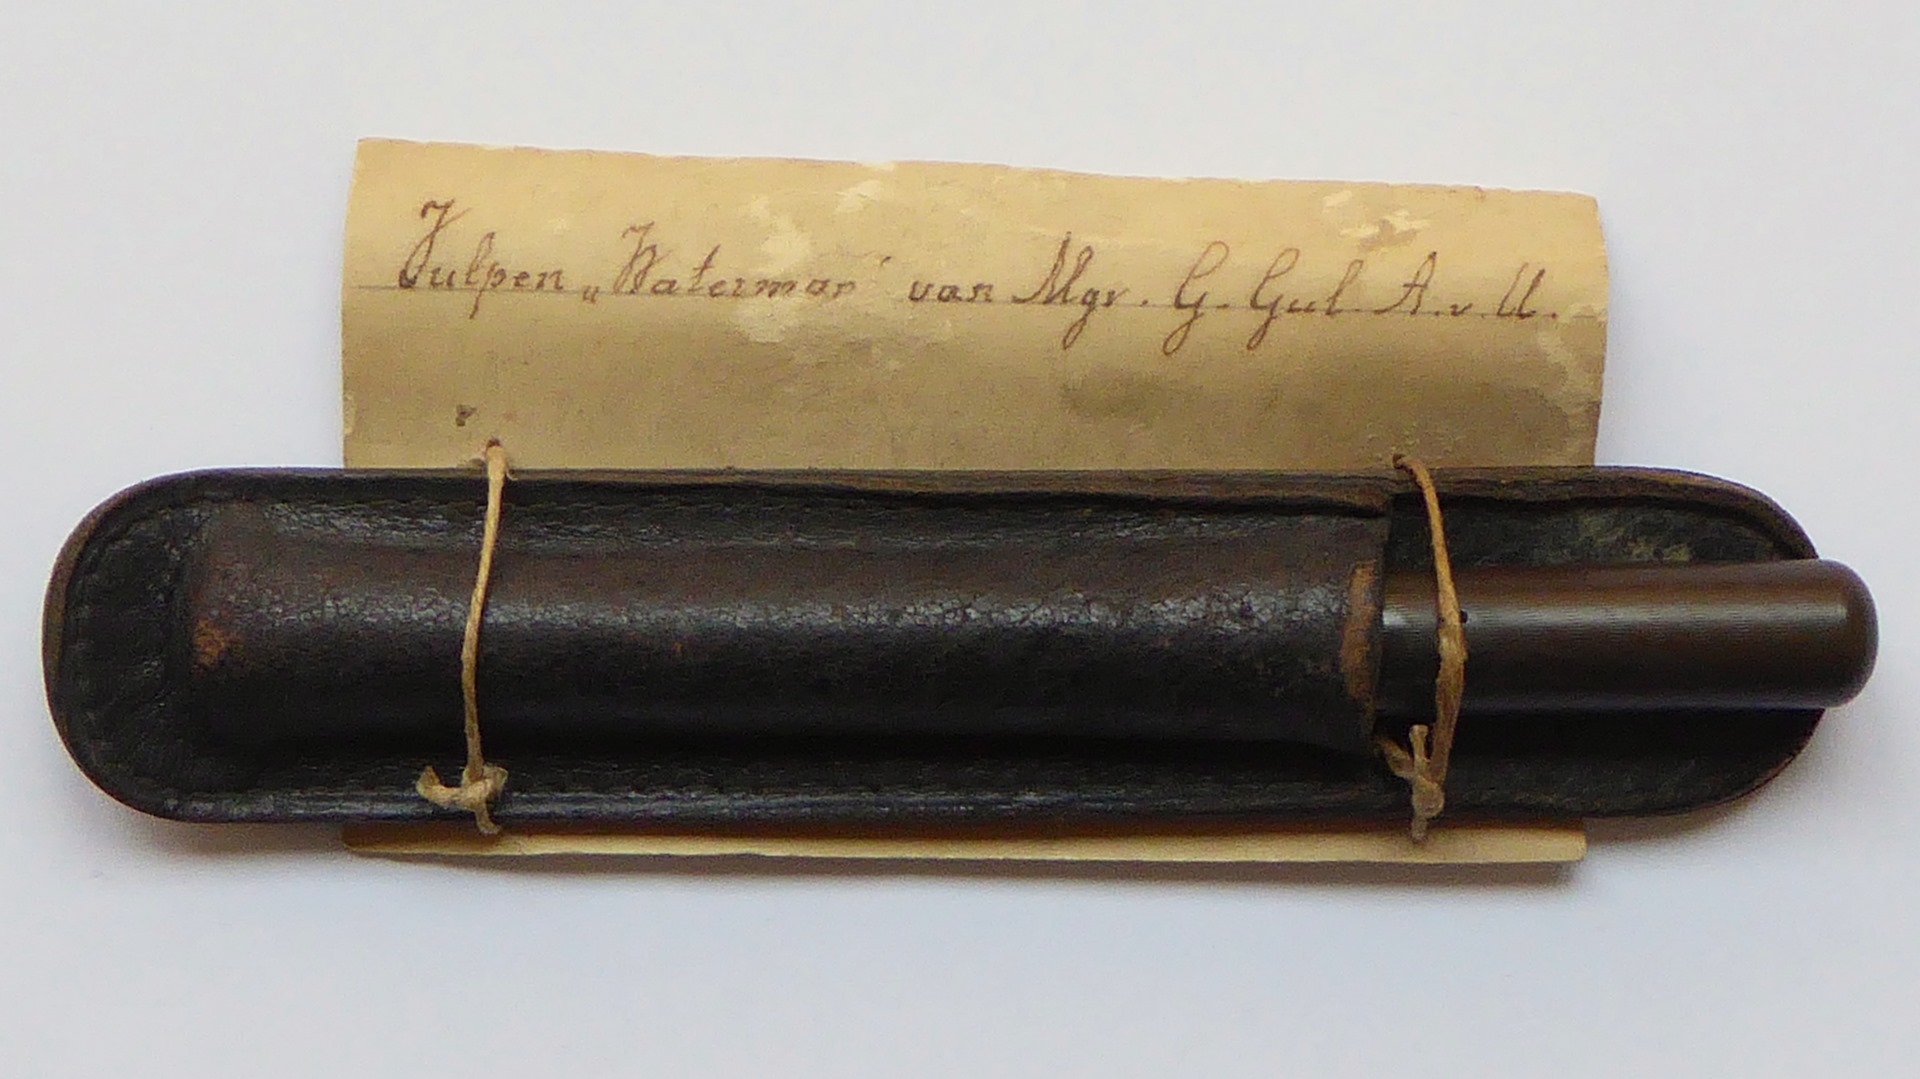 Vulpen „Waterman" van Mgr. G. Gul A. v. U.